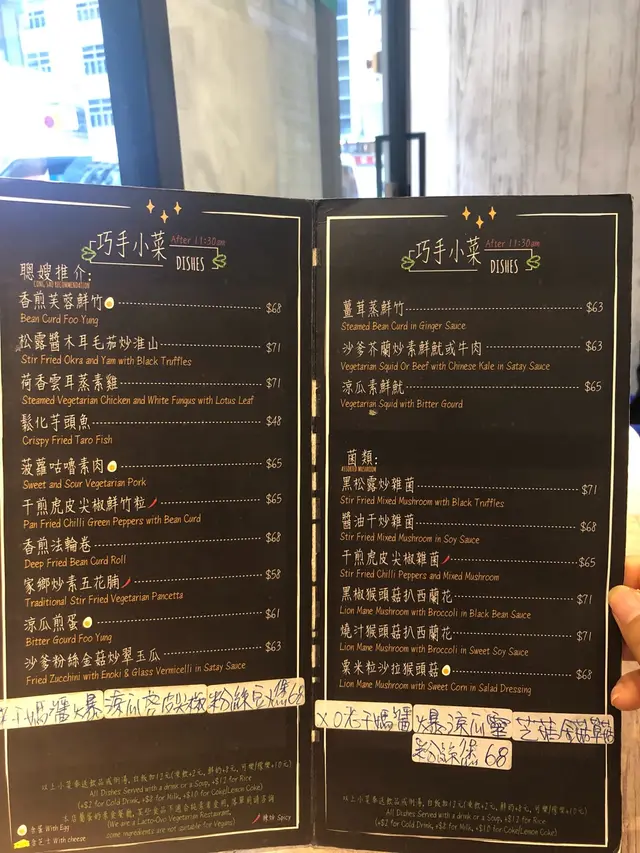 巧手小菜
After 11:30am
DISHES
聰嫂推介:
香煎芙蓉鮮竹 $68
Bean Curd Foo Yung
松露醬木耳毛茄炒淮山 $71
Stir Fried Okra and Yam with Black Truffles
荷香雲耳蒸素雞 $71
Steamed Vegetarian Chicken and White Fungus with Lotus Leaf
鬆化芋頭魚 $48
Crispy Fried Taro Fish
菠蘿咕嚕素肉 $65
Sweet and Sour Vegetarian Pork
干煎虎皮尖椒鮮竹粒 $65
Pan Fried Chilli Green Peppers with Bean Curd
香煎法輪卷 $68
Deep Fried Bean Curd Roll
家鄉炒素五花腩 $58
Traditional Stir Fried Vegetarian Pancetta
涼瓜煎蛋 $61
Bitter Gourd Foo Yung
沙爹粉絲金菇炒翠玉瓜 $63
Fried Zucchini with Enoki & Glass Vermicelli in Satay Sauce
以上小菜奉送飲品或例湯, 白飯加12元(凍飲+2元, 鮮奶+8元, 可樂/檸樂+10元)
All Dishes Served with a drink or a Soup, +$12 for Rice
(+$2 for Cold Drink, +$8 for Milk, +$10 for Coke/Lemon Coke)
(We are a Lacto-Ovo Vegetarian Restaurant,
some ingredients are not suitable for Vegans)
含蛋 With Egg
含芝士 With cheese
辣椒 Spicy
巧手小菜
After 11:30am
DISHES
薑茸蒸鮮竹 $63
Steamed Bean Curd in Ginger Sauce
沙爹芥蘭炒素鮮魷或牛肉 $63
Vegetarian Squid Or Beef with Chinese Kale in Satay Sauce
涼瓜素鮮魷 $65
Vegetarian Squid with Bitter Gourd
菌類:
ASSORTED MUSHROOM
黑松露炒雜菌 $71
Stir Fried Mixed Mushroom with Black Truffles
醬油干炒雜菌 $68
Stir Fried Mixed Mushroom in Soy Sauce
干煎虎皮尖椒雜菌 $65
Stir Fried Chilli Peppers and Mixed Mushroom
黑椒猴頭菇扒西蘭花 $71
Lion Mane Mushroom with Broccoli in Black Bean Sauce
燒汁猴頭菇扒西蘭花 $71
Lion Mane Mushroom with Broccoli in Sweet Soy Sauce
粟米粒沙拉猴頭菇 $68
Lion Mane Mushroom with Sweet Corn in Salad Dressing
粉絲煲 68
以上小菜奉送飲品或例湯, 白飯加12元(凍飲+2元, 鮮奶+8元, 可樂/檸樂+10元)
All Dishes Served with a drink or a Soup, +$12 for Rice
(+$2 for Cold Drink, +$8 for Milk, +$10 for Coke/Lemon Coke)